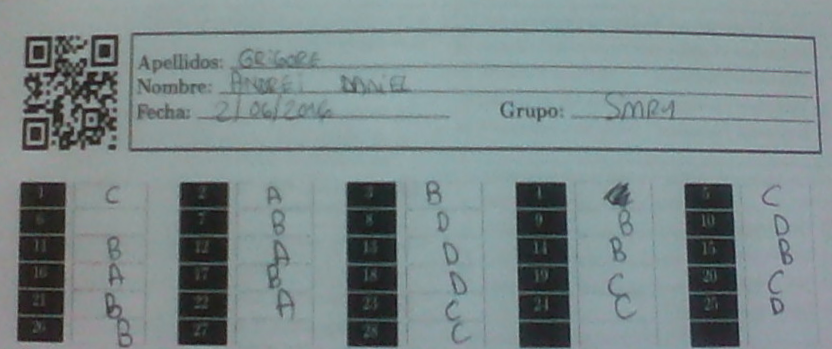 Apellidos: GRIGORE
Nombre: ANDREI DANIEL
Fecha: 2/06/2016 Grupo: SMR1
1 C 2 A 3 B 4 5 C
6 7 B 8 D 9 B 10 D
11 B 12 A 13 D 14 B 15 B
16 A 17 B 18 D 19 C 20 C
21 B 22 A 23 C 24 C 25 D
26 B 27 28 C